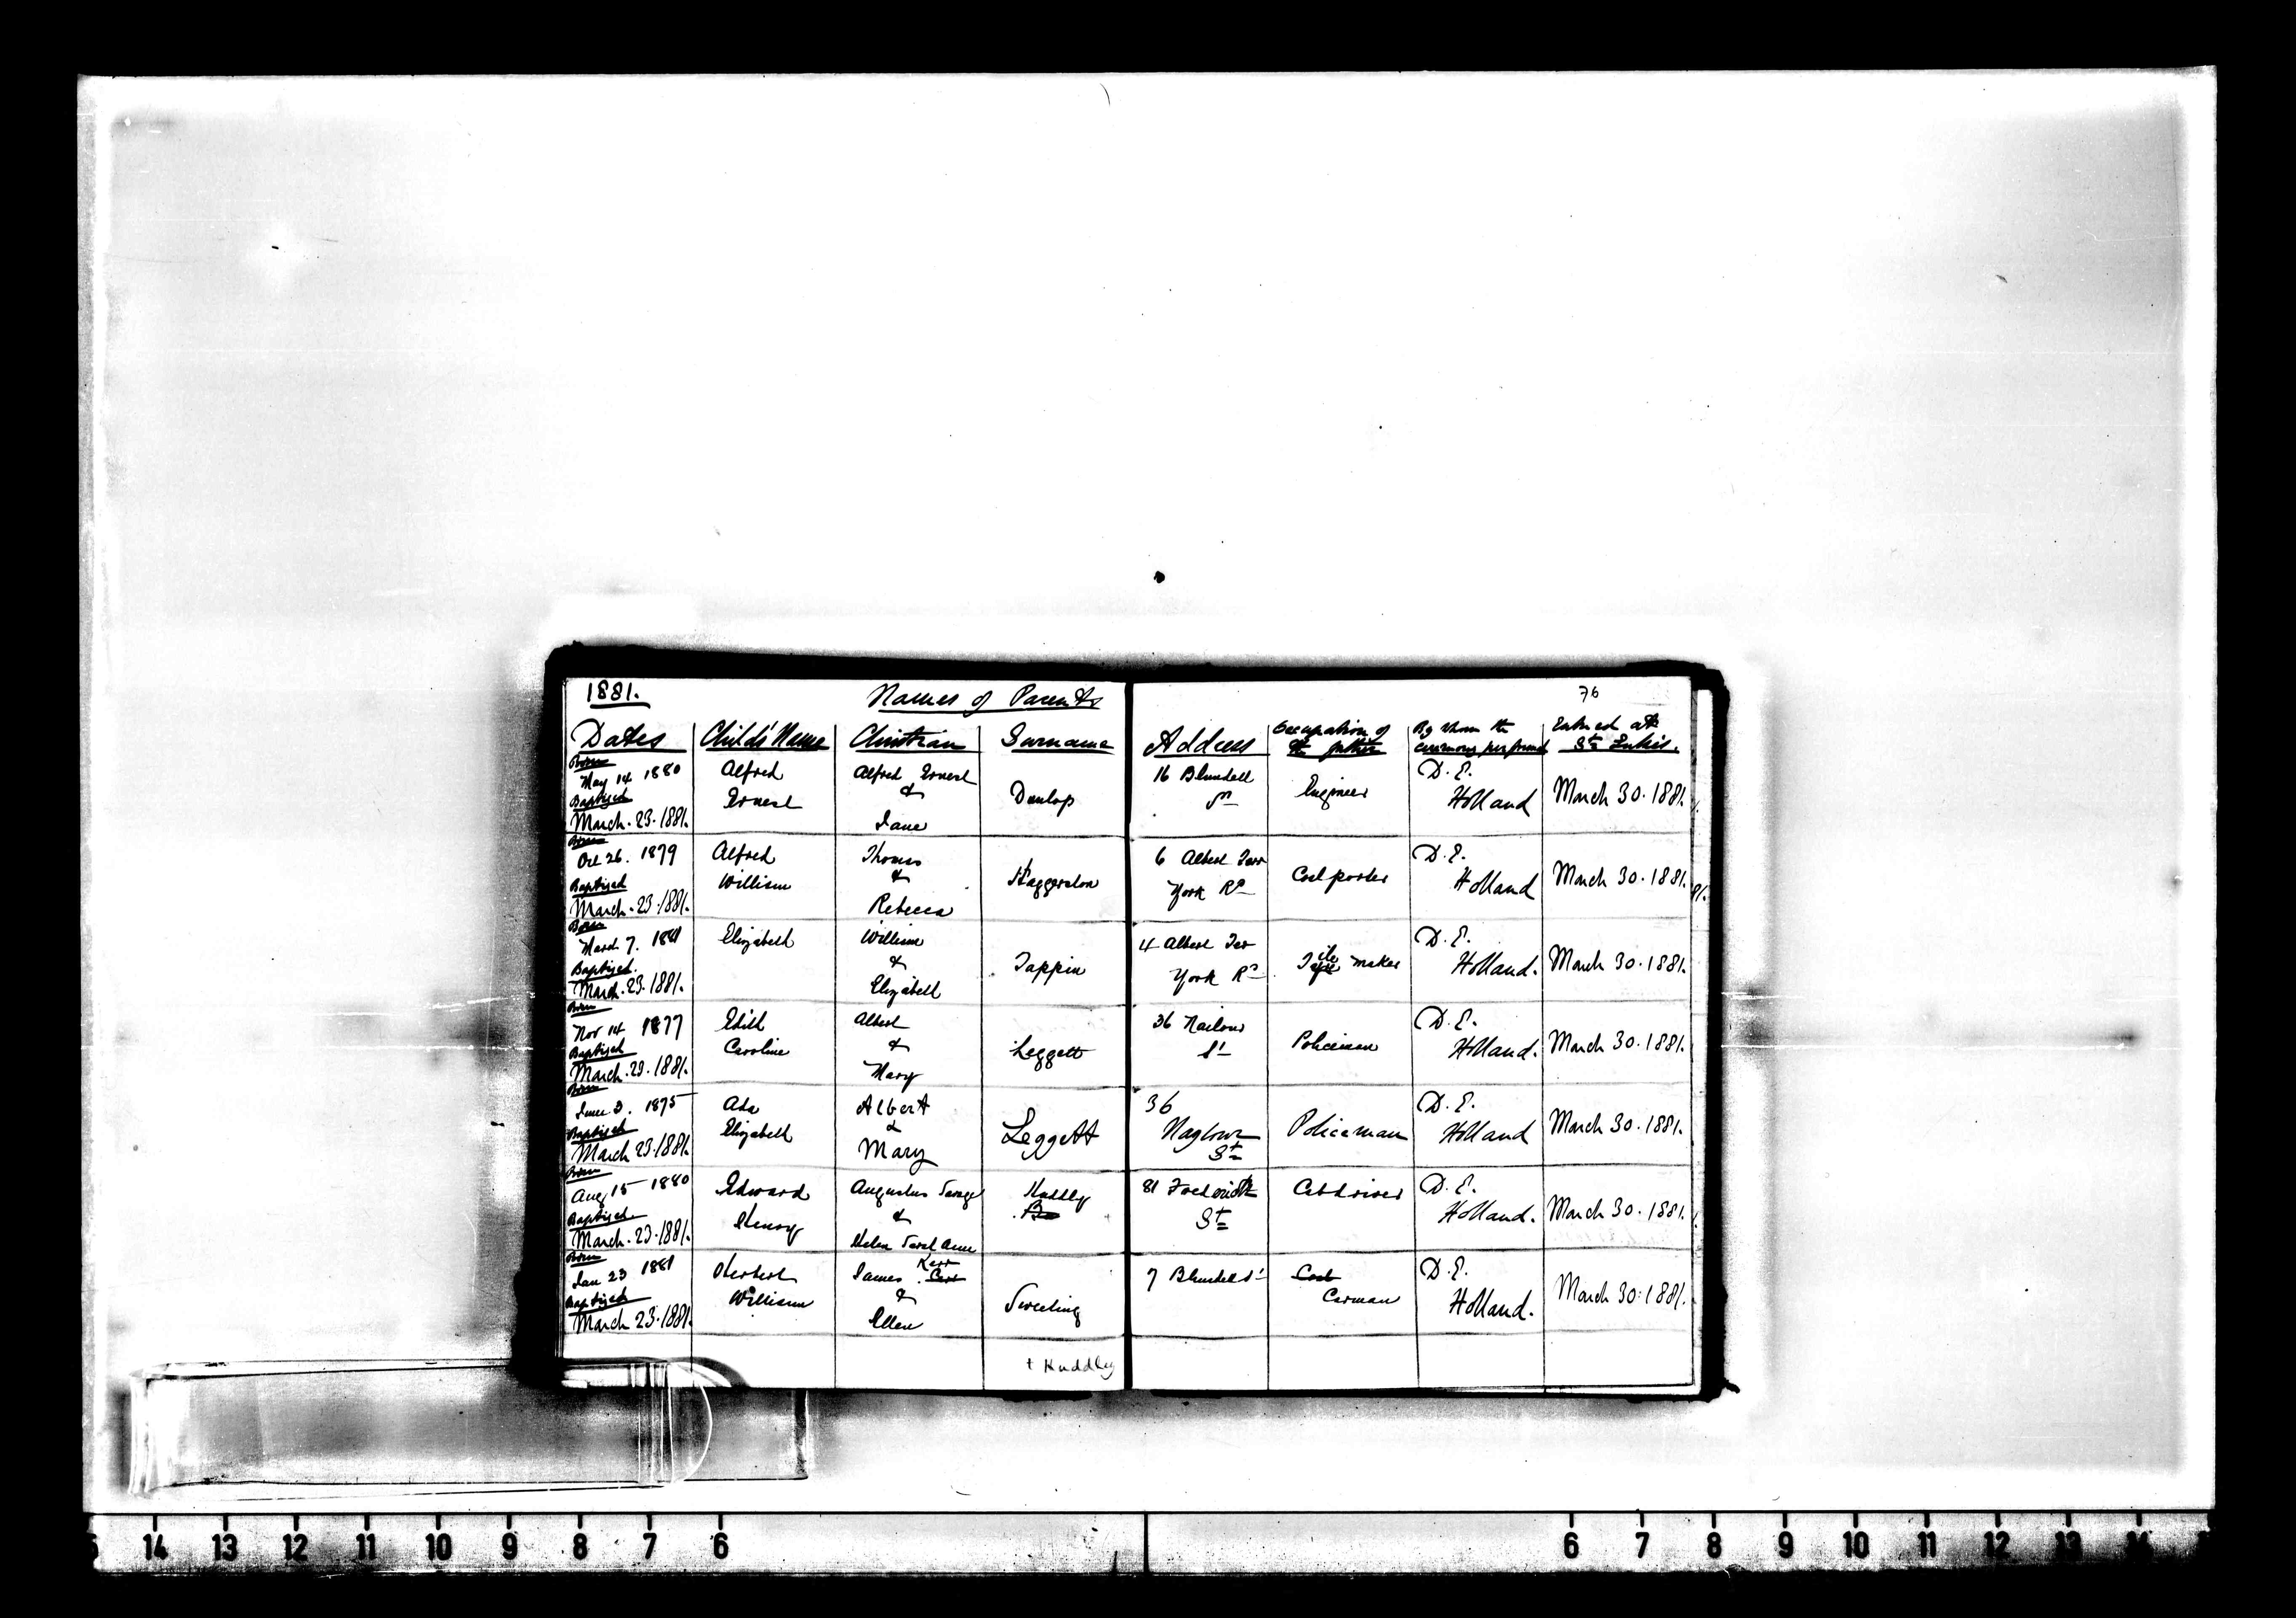 1881. Names of Parents 76
Dates Child's Name Christian Surname Address Occupation of the father By whom the ceremony performed Entered at St Luke's.
Born May 14 1880 Baptized March. 23. 1881. Alfred Ernest Alfred Ernest & Jane Dunlop 16 Blundell St Engineer D. E. Holland March 30. 1881.
Born Oct 26. 1879 Baptized March. 23. 1881. Alfred William Thomas & Rebecca Haggerston 6 Albert Terr York Rd Coal porter D. E. Holland March 30. 1881.
Born March 7. 1881 Baptized. March. 23. 1881. Elizabeth William & Elizabeth Tappin 4 Albert Ter York Rd maker D. E. Holland. March 30. 1881.
Born Nov 14 1877 Baptized March. 23. 1881. Edith Caroline Albert & Mary Leggett 36 St Policeman D. E. Holland. March 30. 1881.
Born June 3. 1875 Baptized March 23. 1881. Ada Elizabeth Albert & Mary Leggett 36 St Policeman D. E. Holland March 30. 1881.
Born Aug 15 1880 Baptized March. 23. 1881. Edward Henry Augustus George & Helen Sarah Ann Huddly 81 Frederick St Cabdriver D. E. Holland. March 30. 1881.
Born Jan 23 1881 Baptized March 23. 1881. Herbert William James Kerr & Ellen Sweeting 7 Blundell St Coal Carman D. E. Holland. March 30. 1881.
+ Huddley
14 13 12 11 10 9 8 7 6 6 7 8 9 10 11 12 13 14